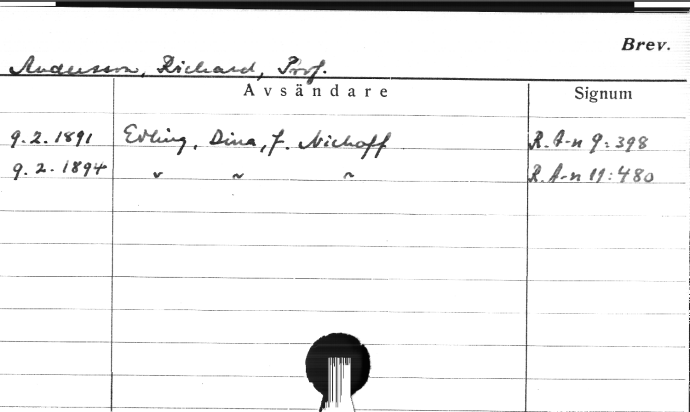 Brev.
Andersson, Richard, Prof.
Avsändare Signum
9.2.1891 Edling, Dina, f. Niehoff R. A-n 9:398
9.2.1894 " " " R. A-n 11:480